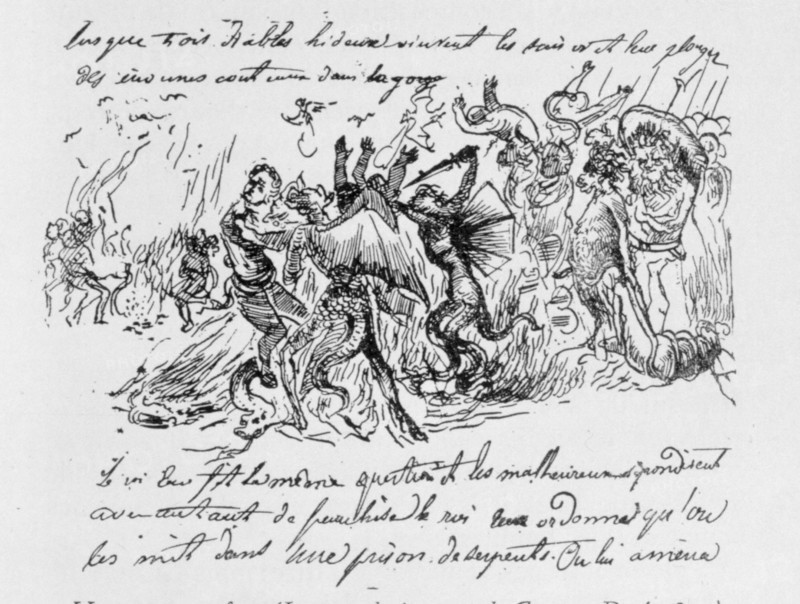 lorsque trois diables hideux vinrent les saisir et leur plonger
des énormes couteaux dans la gorge
Le roi leur fit la même question et les malheureux répondirent
avec autant de franchise le roi ordonna qu'on
les mit dans une prison de serpents. On lui amena